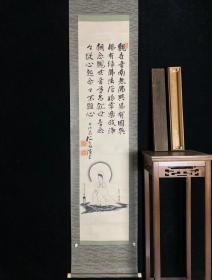 觀世音南無佛與佛有因與
佛有緣佛法僧緣常樂我淨
朝念觀世音暮念觀世音念
念從心起念念不離心